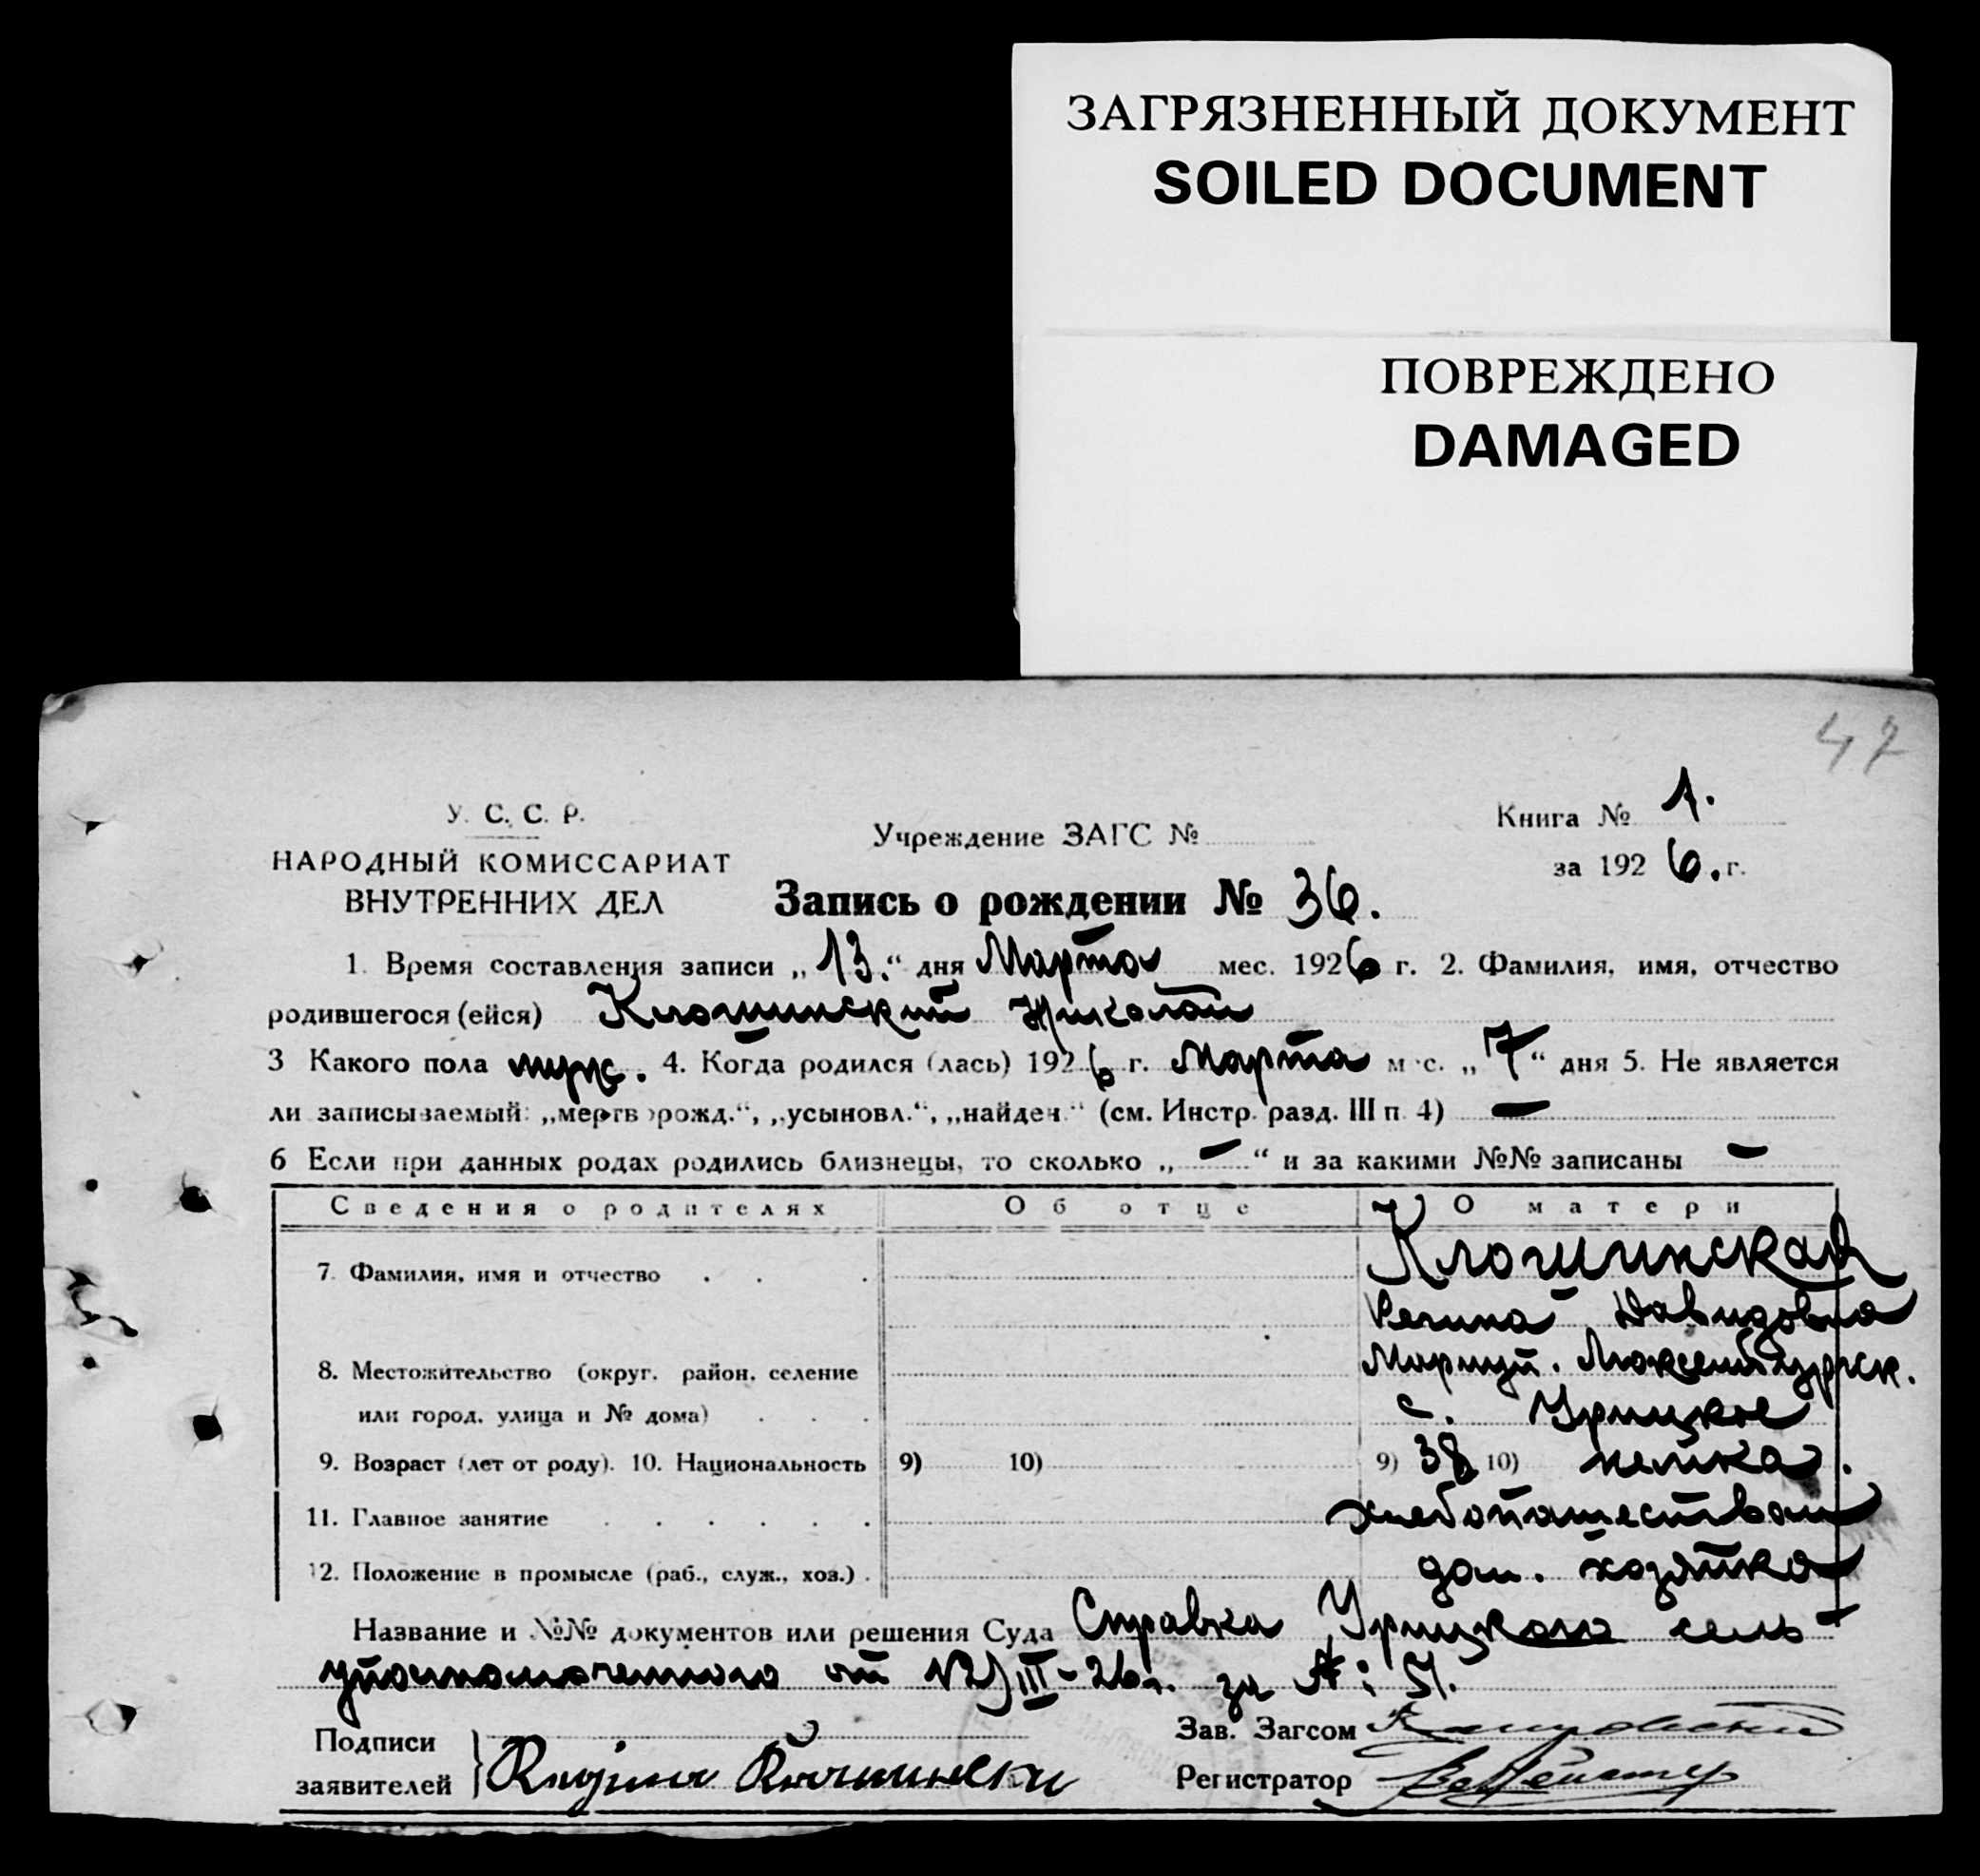 ЗАГРЯЗНЕННЫЙ ДОКУМЕНТ
SOILED DOCUMENT
ПОВРЕЖДЕНО
DAMAGED
47
У. С. С. Р.
НАРОДНЫЙ КОМИССАРИАТ
ВНУТРЕННИХ ДЕЛ
Учреждение ЗАГС №
Книга № 1.
за 1926. г.
Запись о рождении № 36.
1. Время составления записи „13.“ дня Марта мес. 1926 г. 2. Фамилия, имя, отчество
родившегося (ейся) Клошинский Николай
3 Какого пола муж. 4. Когда родился (лась) 1926 г. Марта мес. „7“ дня 5. Не является
ли записываемый: „мертворожд.“, „усыновл.“, „найден.“ (см. Инстр. разд. III п. 4) —
6 Если при данных родах родились близнецы, то сколько „—“ и за какими №№ записаны —
Сведения о родителях Об отце О матери
7. Фамилия, имя и отчество . . . Клошинская
Регина Давидовна
8. Местожительство (округ. район. селение Мариуп. Люксембургск.
или город. улица и № дома) . . . с. Урицкое
9. Возраст (лет от роду). 10. Национальность 9) 10) 9) 38 10) немка.
11. Главное занятие . . . . . . хлебопашеством
12. Положение в промысле (раб., служ., хоз.) . дом. хозяйка
Название и №№ документов или решения Суда Справка Урицкого сель
уполномоченного от 12/III-26г. за №: 51.
Подписи
заявителей
Зав. Загсом
Регистратор